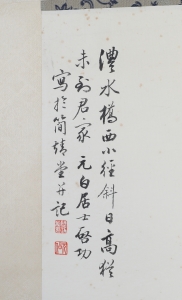 澧水橋西小徑斜日高猶
未到君家 元白居士啓功
寫於簡靖堂并記